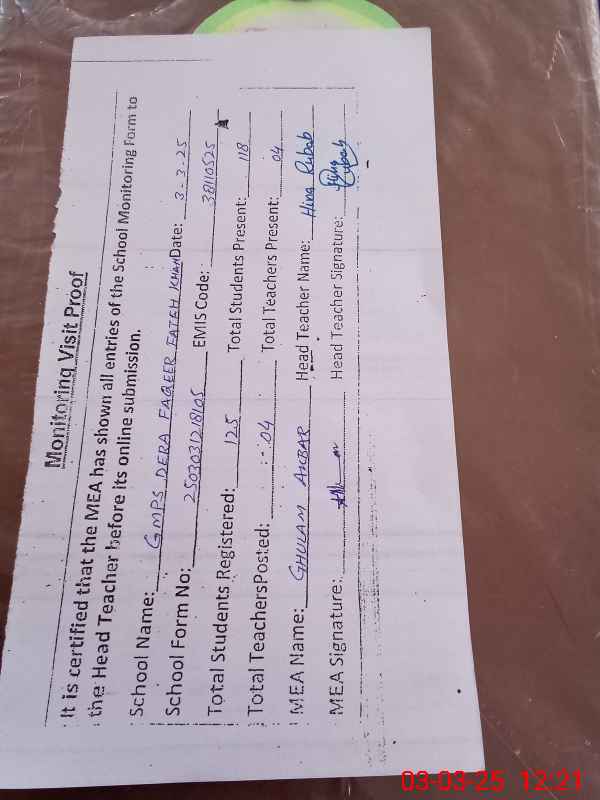 Monitoring Visit Proof
It is certified that the MEA has shown all entries of the School Monitoring Form to
the Head Teacher before its online submission.
School Name: GMPS DERA FAQEER FATEH KHAN Date: 3-3-25
School Form No: 2503031218105 EMIS Code: 38110525
Total Students Registered: 125 Total Students Present: 118
Total TeachersPosted: 04 Total Teachers Present: 04
MEA Name: GHULAM AKBAR Head Teacher Name: Hina Rubab
MEA Signature: Head Teacher Signature: Hina Rubab
03-03-25 12:21